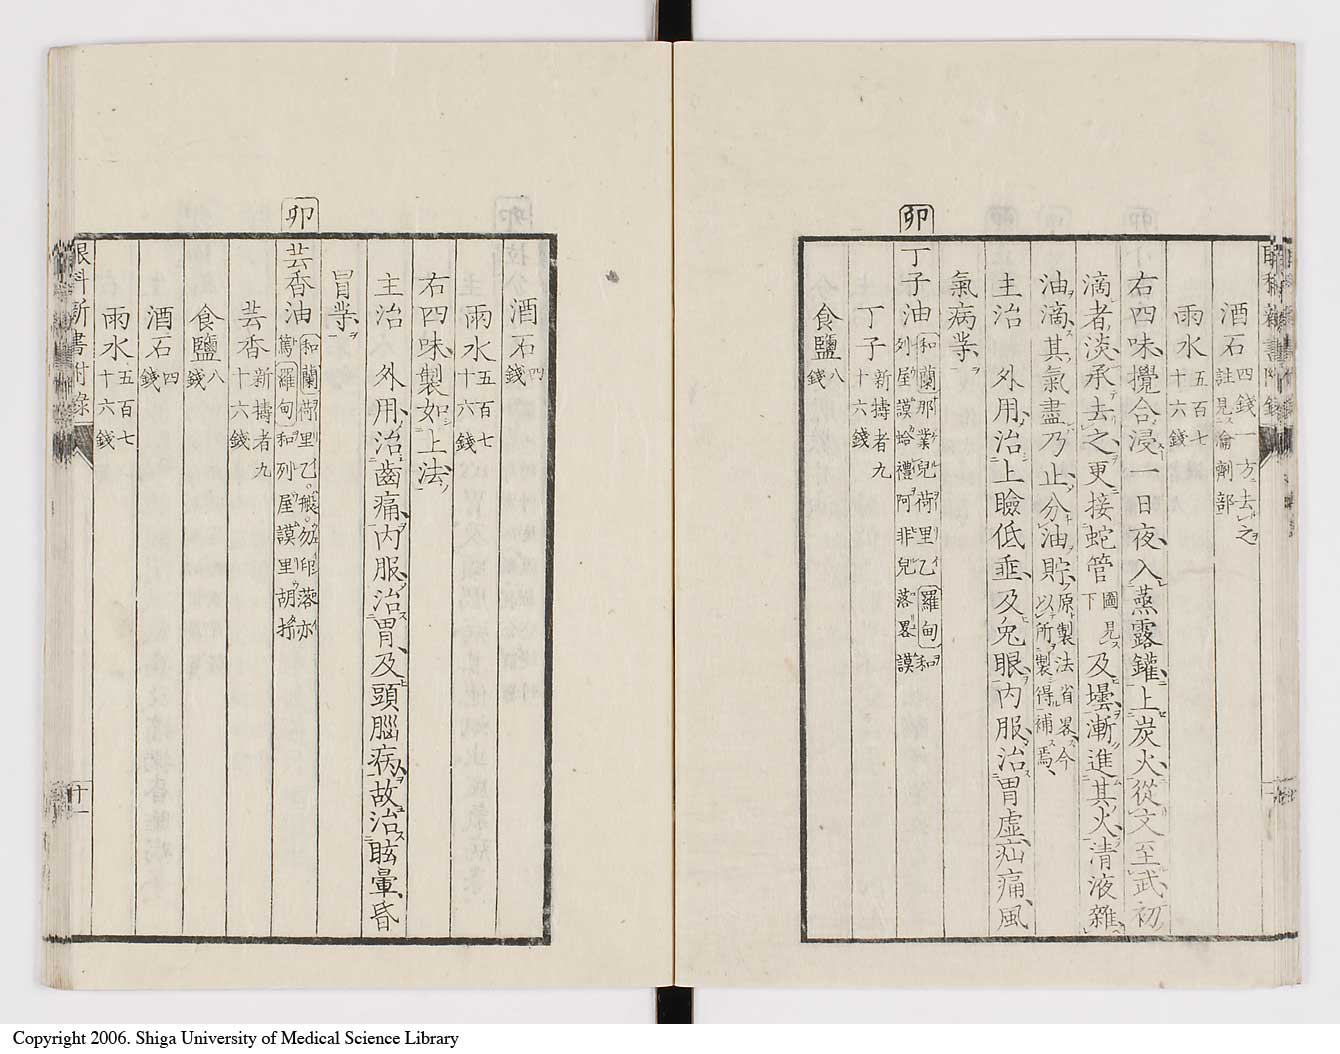 酒石四錢一方去之
註見瀹劑部
雨水五百七
十六錢
右四味攪合浸一日夜入蒸露鑵上炭火從文至武初
滴者淡承去之更接蛇管圖見下及壜漸進其火清液雜
油滴其氣盡乃止分油貯原製法省畧今
以所製得補焉
主治 外用治上瞼低垂及兔眼內服治胃虛疝痛風
氣病
卯
丁子油 和蘭
列屋謨蛤禮阿非兒落畧謨
羅甸和
丁子新擣者九
十六錢
食鹽八
錢
酒石四
錢
雨水五百七
十六錢
右四味製如上法
主治 外用治齒痛內服治胃及頭腦病故治眩暈昏
冒
卯
芸香油 和蘭
羅甸和列屋謨里胡
芸香新擣者九
十六錢
食鹽八
錢
酒石四
錢
雨水五百七
十六錢
眼科新書附錄
十一
Copyright 2006. Shiga University of Medical Science Library